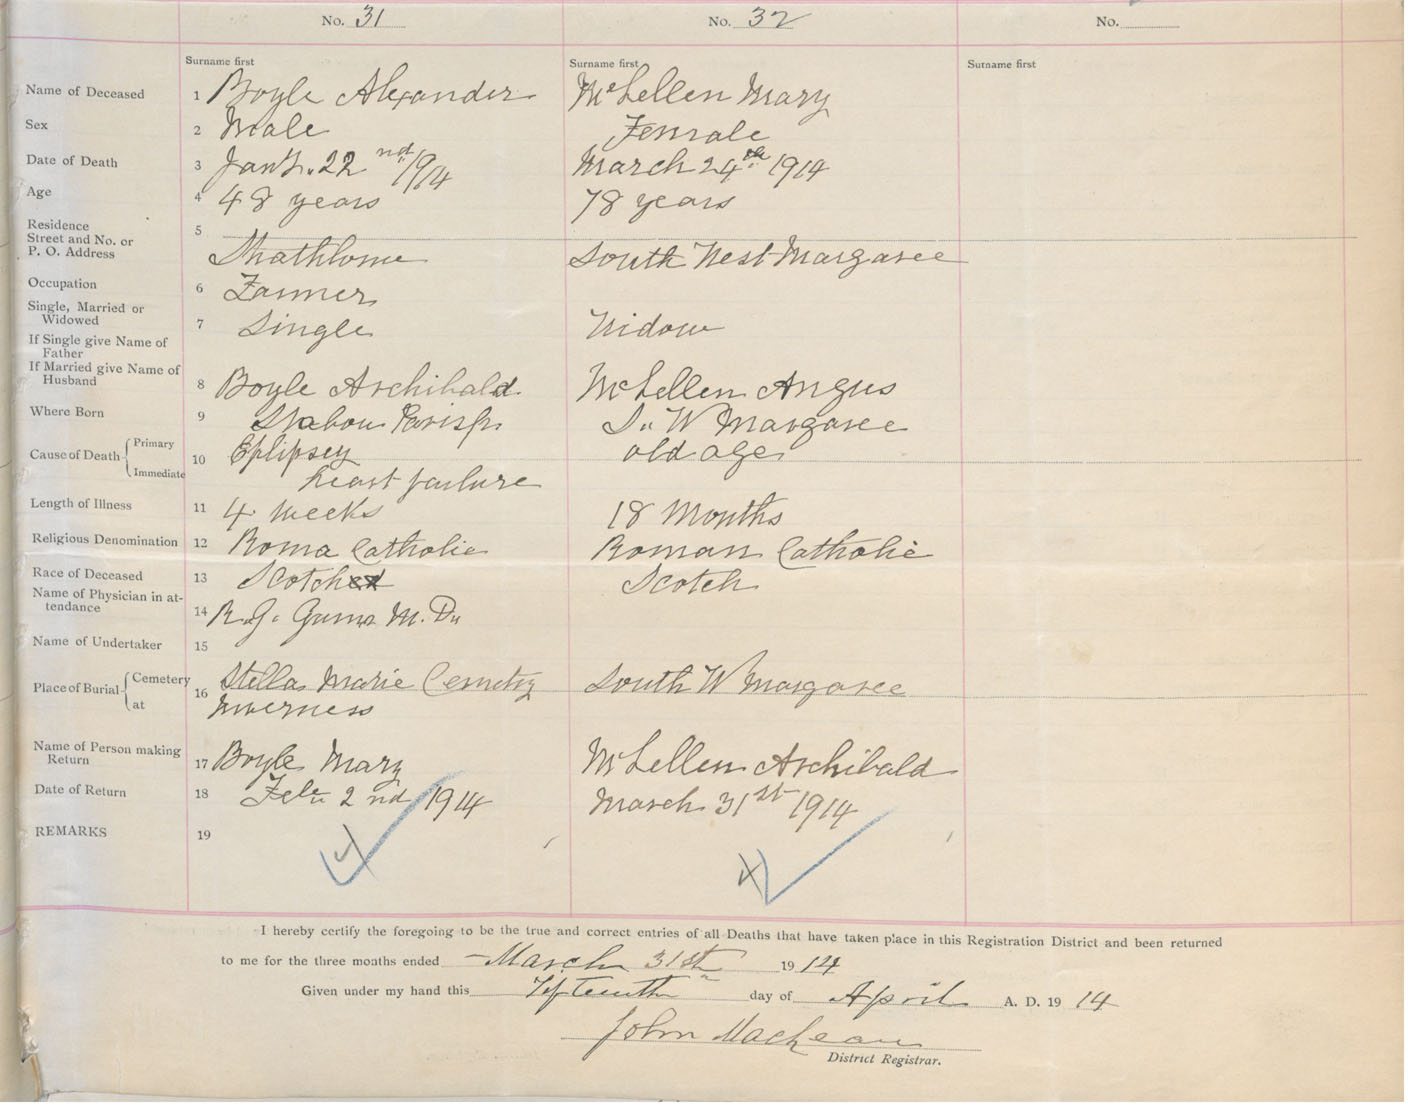 No. 31 No. 32 No.
Surname first Surname first Surname first
Name of Deceased 1 Boyle Alexander McLellen Mary
Sex 2 Male Female
Date of Death 3 Jany. 22nd 1914 March 24th 1914
Age 4 48 years 78 years
Residence
Street and No. or 5
P. O. Address Strathlorne South West Margaree
Occupation 6 Farmer
Single, Married or
Widowed 7 Single Widow
If Single give Name of
Father
If Married give Name of
Husband 8 Boyle Archibald McLellen Angus
Where Born 9 Mabou Parish S. W Margaree
Cause of Death Primary 10 Eplipsey old age
Immediate heart failure
Length of Illness 11 4 weeks 18 Months
Religious Denomination 12 Roma Catholic Roman Catholic
Race of Deceased 13 Scotch Scotch
Name of Physician in at-
tendance 14 M. D.
Name of Undertaker 15
Place of Burial Cemetery 16 Stella Marie Cemetry South W Margaree
at Inverness
Name of Person making
Return 17 Boyle Mary McLellen Archibald
Date of Return 18 Feb. 2nd 1914 March 31st 1914
REMARKS 19
I hereby certify the foregoing to be the true and correct entries of all Deaths that have taken place in this Registration District and been returned
to me for the three months ended March 31st 1914
Given under my hand this day of April A. D. 1914
John MacLean
District Registrar.